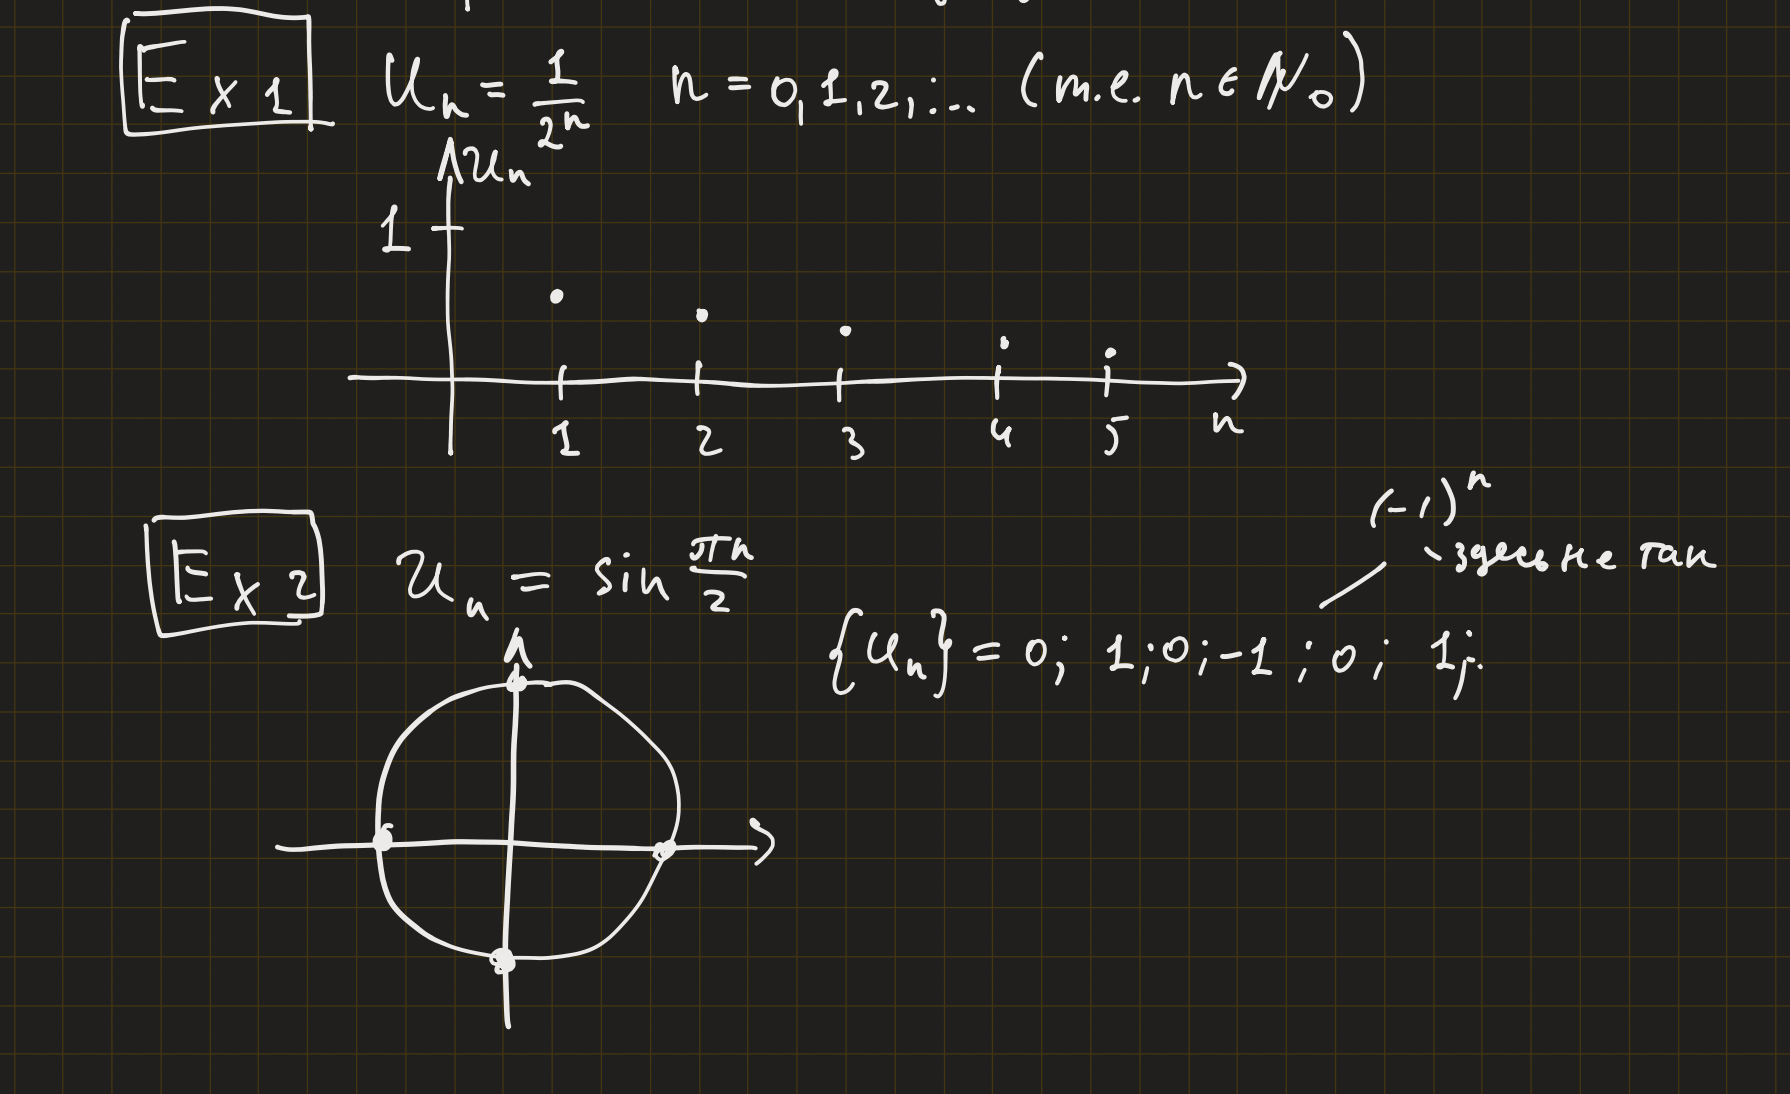 Ex 1 Uₙ = 1/2ⁿ n = 0,1,2,... (т.е. n ∈ ℕ₀)
Uₙ
1
1 2 3 4 5 n
(-1)ⁿ
Ex 2 Uₙ = sin πn/2
- здесь не так
{Uₙ} = 0; 1; 0; -1; 0; 1;..